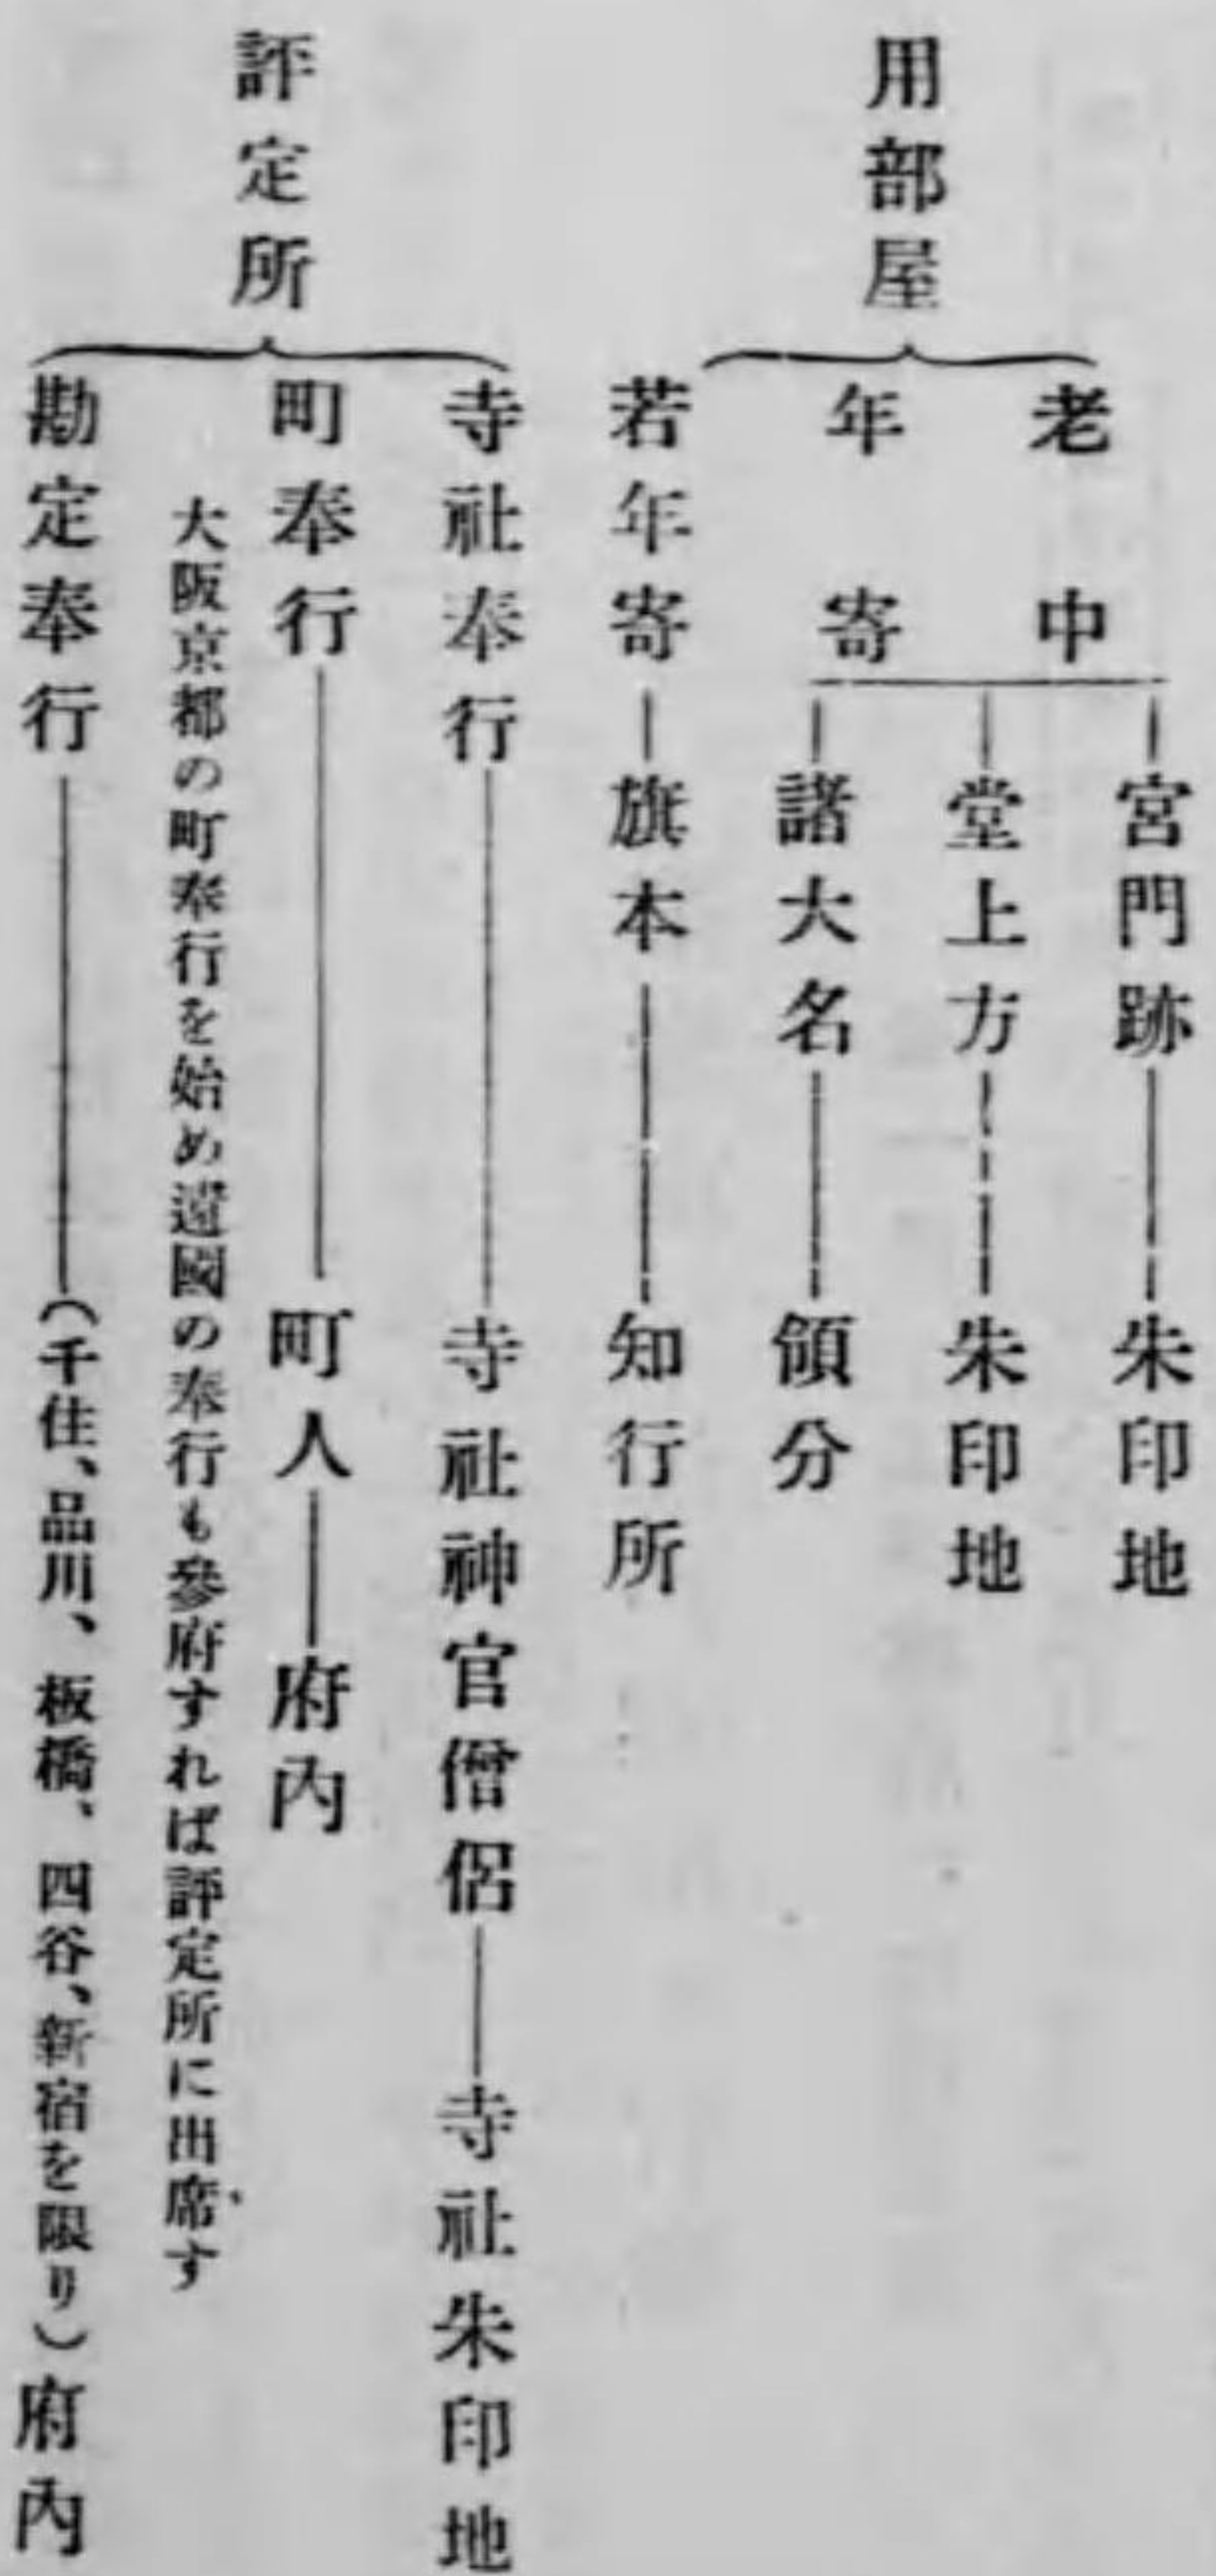 用部屋
老中
宮門跡
朱印地
堂上方
朱印地
年寄
諸大名
領分
若年寄
旗本
知行所
評定所
寺社奉行
寺社神官僧侶
寺社朱印地
町奉行
町人
府內
大阪京都の町奉行を始め遠國の奉行も參府すれば評定所に出席す
勘定奉行
(千住、品川、板橋、四谷、新宿を限り)府內